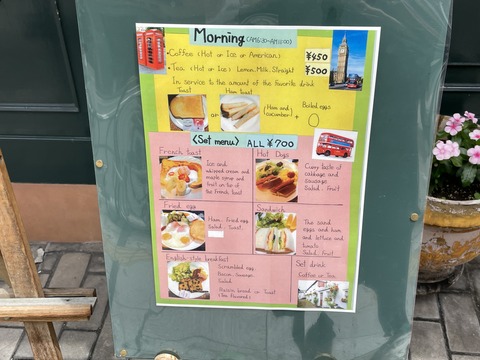 Morning (AM6:30~AM11:00)
・Coffee (Hot or Ice or American) ¥450
・Tea (Hot or Ice) Lemon, Milk, Straight ¥500
In service to the amount of the favorite drink
Toast
or
Ham toast
(Ham and cucumber)
+
Boiled eggs
〈Set menu〉 ALL ¥700
French toast
Ice and
whipped cream and
maple syrup and
fruit on top of
the French toast
Hot Dogs
Curry taste of
cabbage and
sausage
Salad. Fruit
Fried egg
Ham. Fried egg
Salad. Toast.
Sandwich
The sand
eggs and ham
and lettuce and
tomato
Salad. Fruit
English-style breakfast
Scrambled egg
Bacon.
Salad
Raisin bread or Toast
(Tea flavored)
Set drink
Coffee or Tea